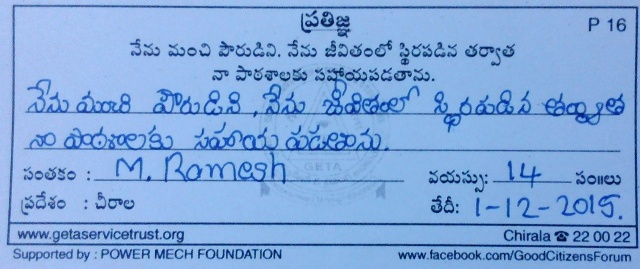 ప్రతిజ్ఞ
P 16
నేను మంచి పౌరుడిని. నేను జీవితంలో స్థిరపడిన తర్వాత
నా పాఠశాలకు సహాయపడతాను.
నేను మంచి పౌరుడిని, నేను జీవితంలో స్థిరపడిన తర్వాత
నా పాఠశాలకు సహాయ పడతాను.
సంతకం : M. Ramesh వయస్సు: 14 సం॥లు
ప్రదేశం : చీరాల తేదీ: 1-12-2015.
www.getaservicetrust.org Chirala ☎ 22 00 22
Supported by : POWER MECH FOUNDATION www.facebook.com/GoodCitizensForum
GETA